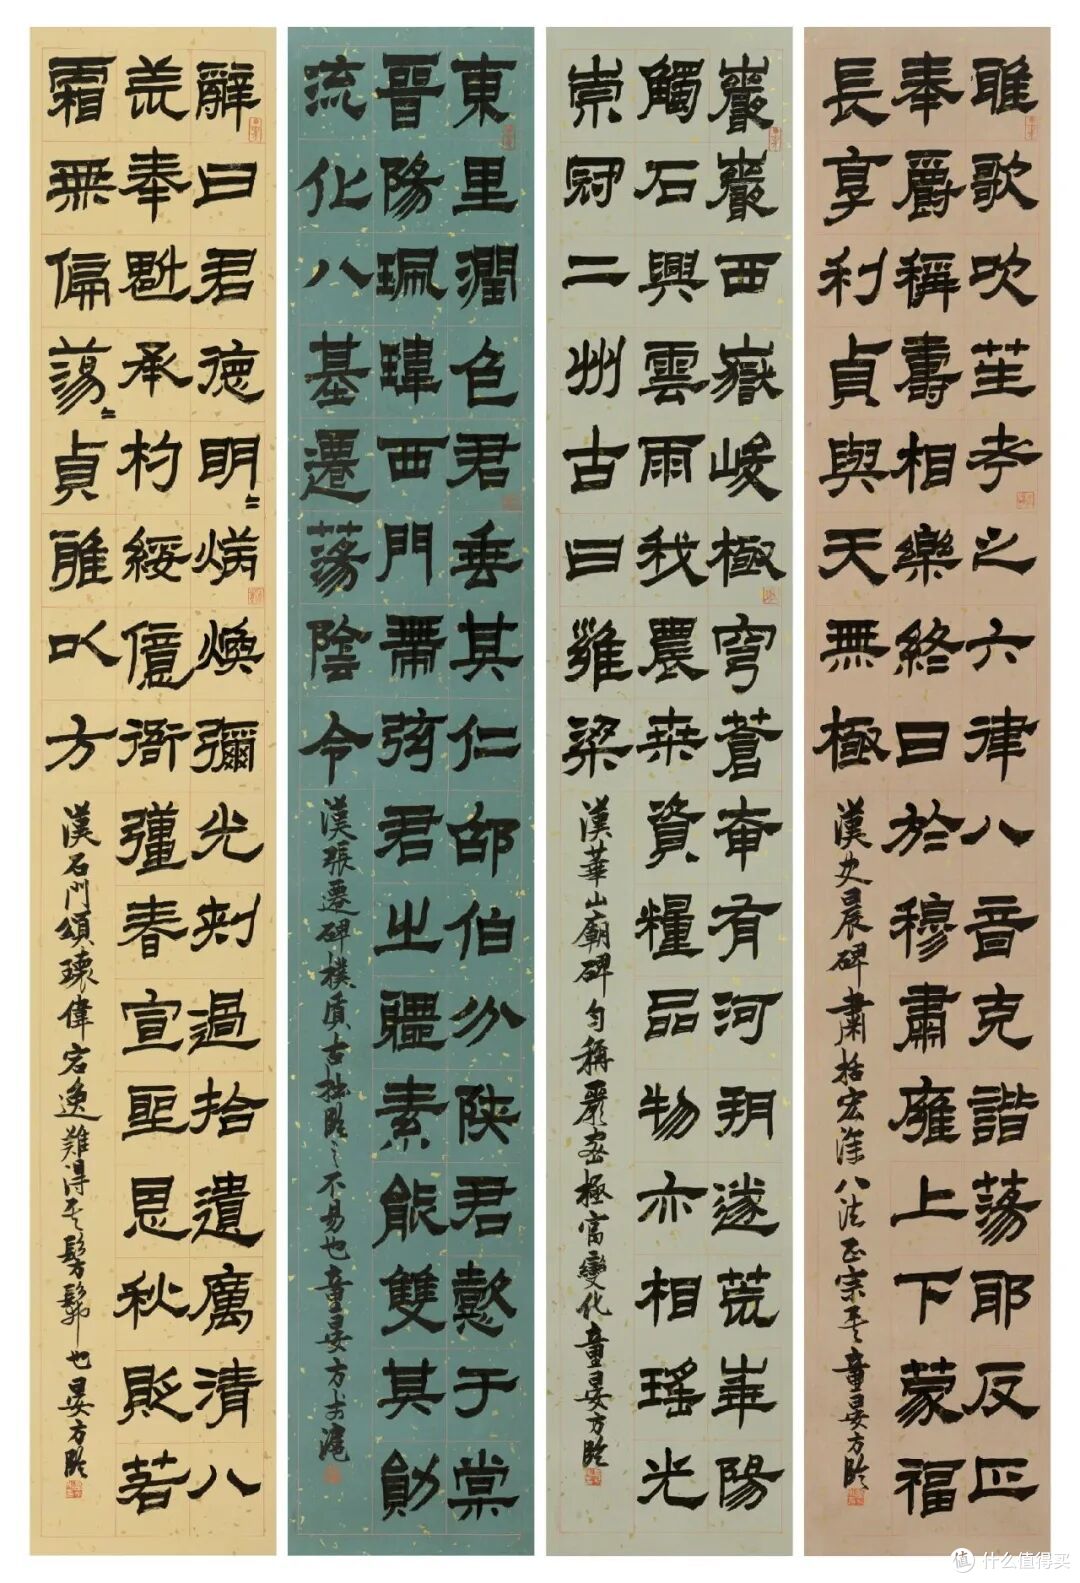 雅歌吹笙考之六律八音克諧蕩耶反正
奉爵稱壽相樂終日於穆肅雍上下蒙福
長享利貞與天無極
漢史晨碑肅括宏深八法正宗童晏方臨
巖巖西嶽峻極穹蒼奄有河朔遂荒華陽
觸石興雲雨我農桑資糧品物亦相瑤光
崇冠二州古曰雍梁
漢華山廟碑勻稱嚴密極富變化童晏方臨
東里潤色君垂其仁邵伯分陝君懿于棠
晉陽珮瑋西門帶弦君之體素能雙其勛
流化八基遷蕩陰令
漢張遷碑樸質古拙臨之不易也童晏方於滬
辭曰君德明〻炳煥彌光刺過拾遺厲清八
荒奉魁承杓綏億衙彊春宣聖恩秋貶若
霜無偏蕩〻貞雅以方
漢石門頌瓌偉宕逸難得其髣髴也晏方臨
值 什么值得买